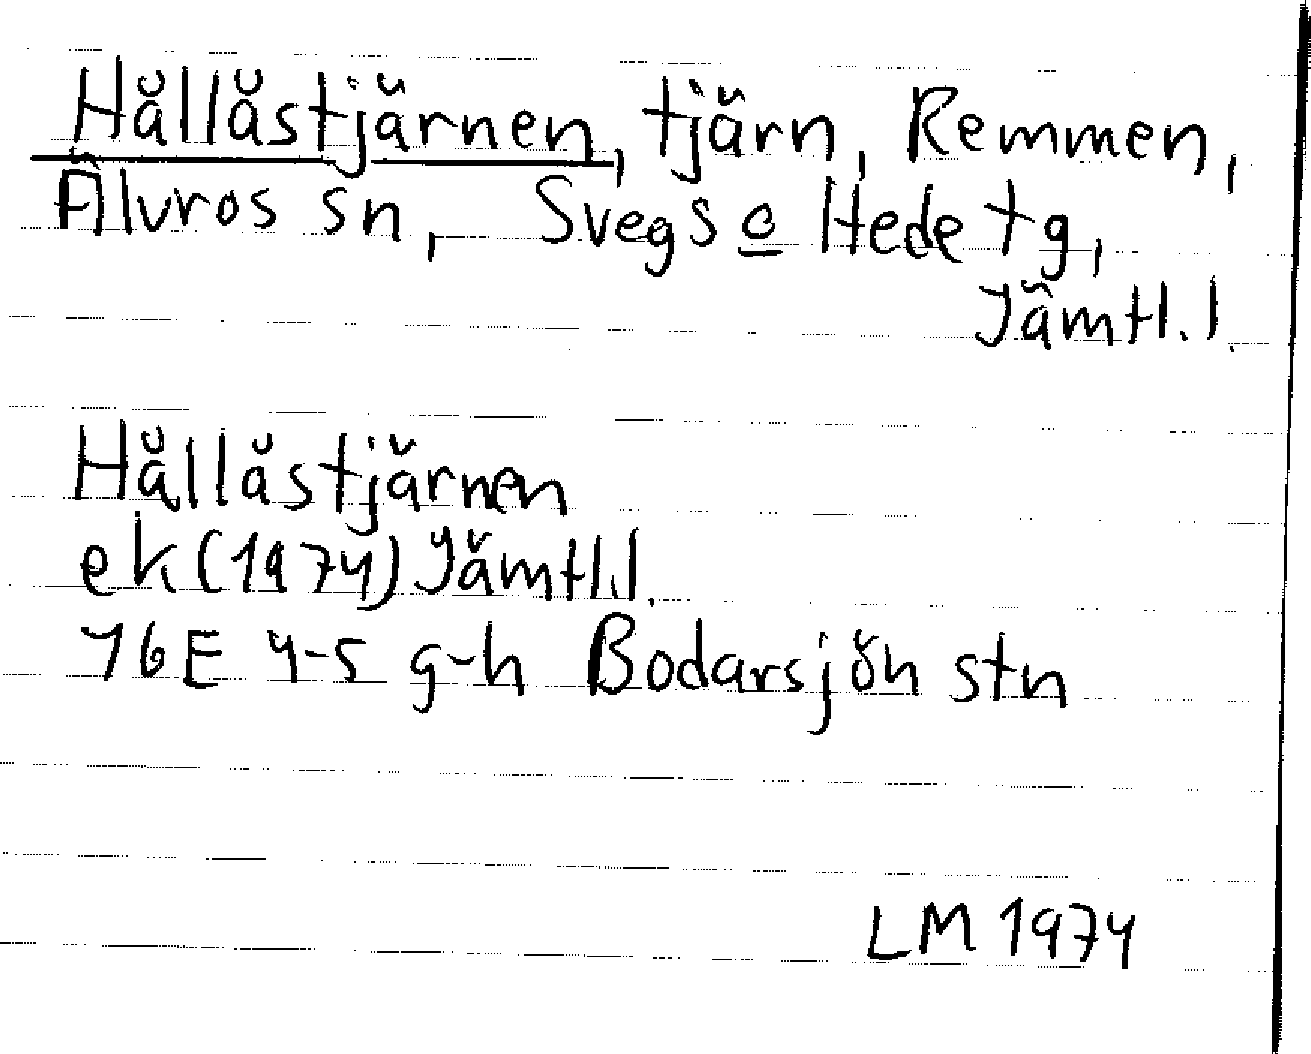 Hållåstjärnen, tjärn, Remmen,
Älvros sn, Svegs o Hede tg,
Jämtl.l.
Hållåstjärnen
ek (1974) Jämtl.l.
16E 4-5 g-h Bodarsjön stn
LM 1974